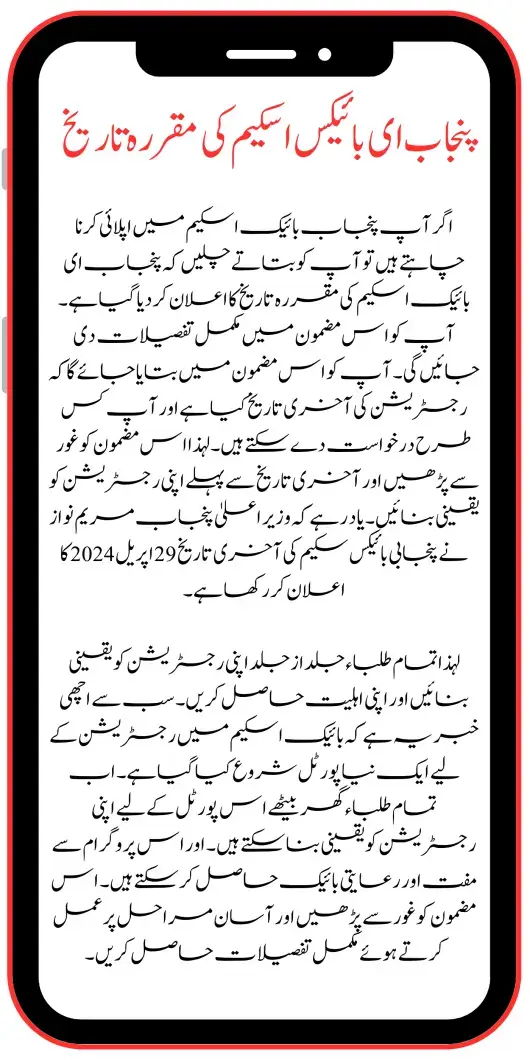 پنجاب ای بائیکس اسکیم کی مقررہ تاریخ
اگر آپ پنجاب بائیک اسکیم میں اپلائی کرنا
چاہتے ہیں تو آپ کو بتاتے چلیں کہ پنجاب ای
بائیک اسکیم کی مقررہ تاریخ کا اعلان کر دیا گیا ہے۔
آپ کو اس مضمون میں مکمل تفصیلات دی
جائیں گی۔ آپ کو اس مضمون میں بتایا جائے گا کہ
رجسٹریشن کی آخری تاریخ کیا ہے اور آپ کس
طرح درخواست دے سکتے ہیں۔ لہذا اس مضمون کو غور
سے پڑھیں اور آخری تاریخ سے پہلے اپنی رجسٹریشن کو
یقینی بنائیں۔ یاد رہے کہ وزیر اعلیٰ پنجاب مریم نواز
نے پنجابی بائیکس سکیم کی آخری تاریخ 29 اپریل 2024 کا
اعلان کر رکھا ہے۔
لہذا تمام طلباء جلد از جلد اپنی رجسٹریشن کو یقینی
بنائیں اور اپنی اہلیت حاصل کریں۔ سب سے اچھی
خبر یہ ہے کہ بائیک اسکیم میں رجسٹریشن کے
لیے ایک نیا پورٹل شروع کیا گیا ہے۔ اب
تمام طلباء گھر بیٹھے اس پورٹل کے لیے اپنی
رجسٹریشن کو یقینی بنا سکتے ہیں۔ اور اس پروگرام سے
مفت اور رعایتی بائیک حاصل کر سکتے ہیں۔ اس
مضمون کو غور سے پڑھیں اور آسان مراحل پر عمل
کرتے ہوئے مکمل تفصیلات حاصل کریں۔